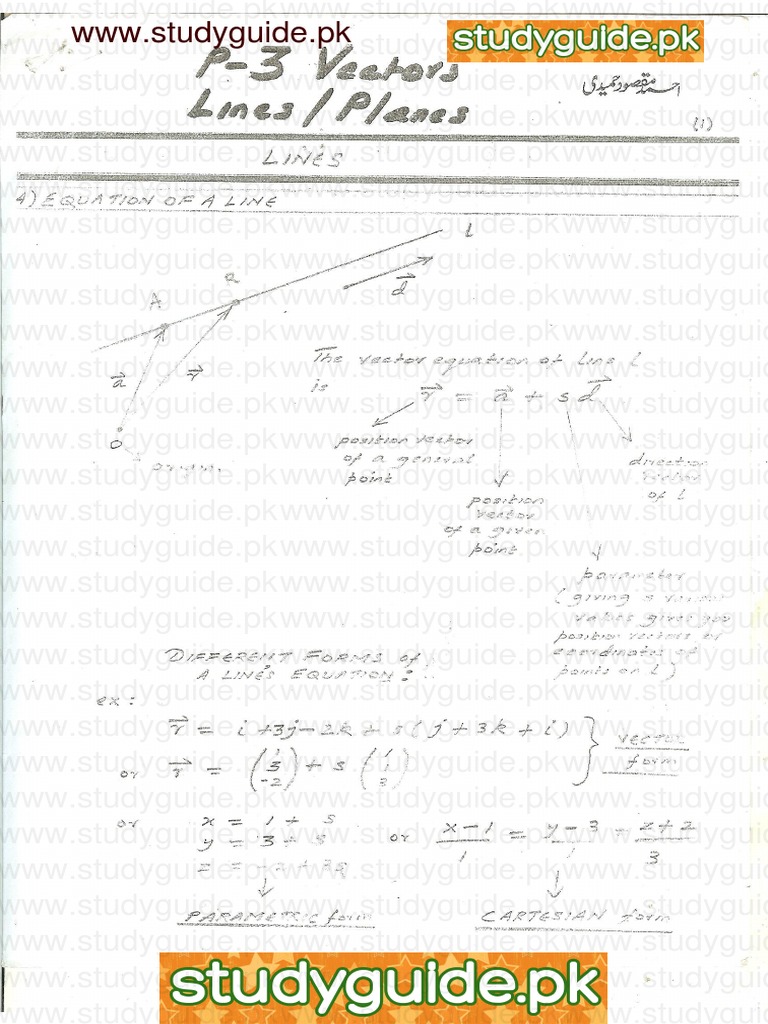 www.studyguide.pk
studyguide.pk
P-3 Vectors
Lines / Planes
احمد مقصود حمیدی
(1)
LINES
A) EQUATION OF A LINE
l
d⃗
R
A
a⃗
r⃗
O
origin.
The vector equation of Line l
is r⃗ = a⃗ + s d⃗
position vector
of a general
point
position
vector
of a given
point
direction
vector
of l
parameter
(giving s various
values gives you
position vectors or
coordinates of
points on l)
DIFFERENT FORMS of
A LINE'S EQUATION:
ex:
r⃗ = i + 3j - 2k + s(j + 3k + i)
or r⃗ = (1 3 -2) + s (1 1 3)
vector
form
or x = 1 + s
y = 3 + s
z = -2 + 3s
or x-1/1 = y-3/1 = z+2/3
PARAMETRIC form
CARTESIAN form
studyguide.pk